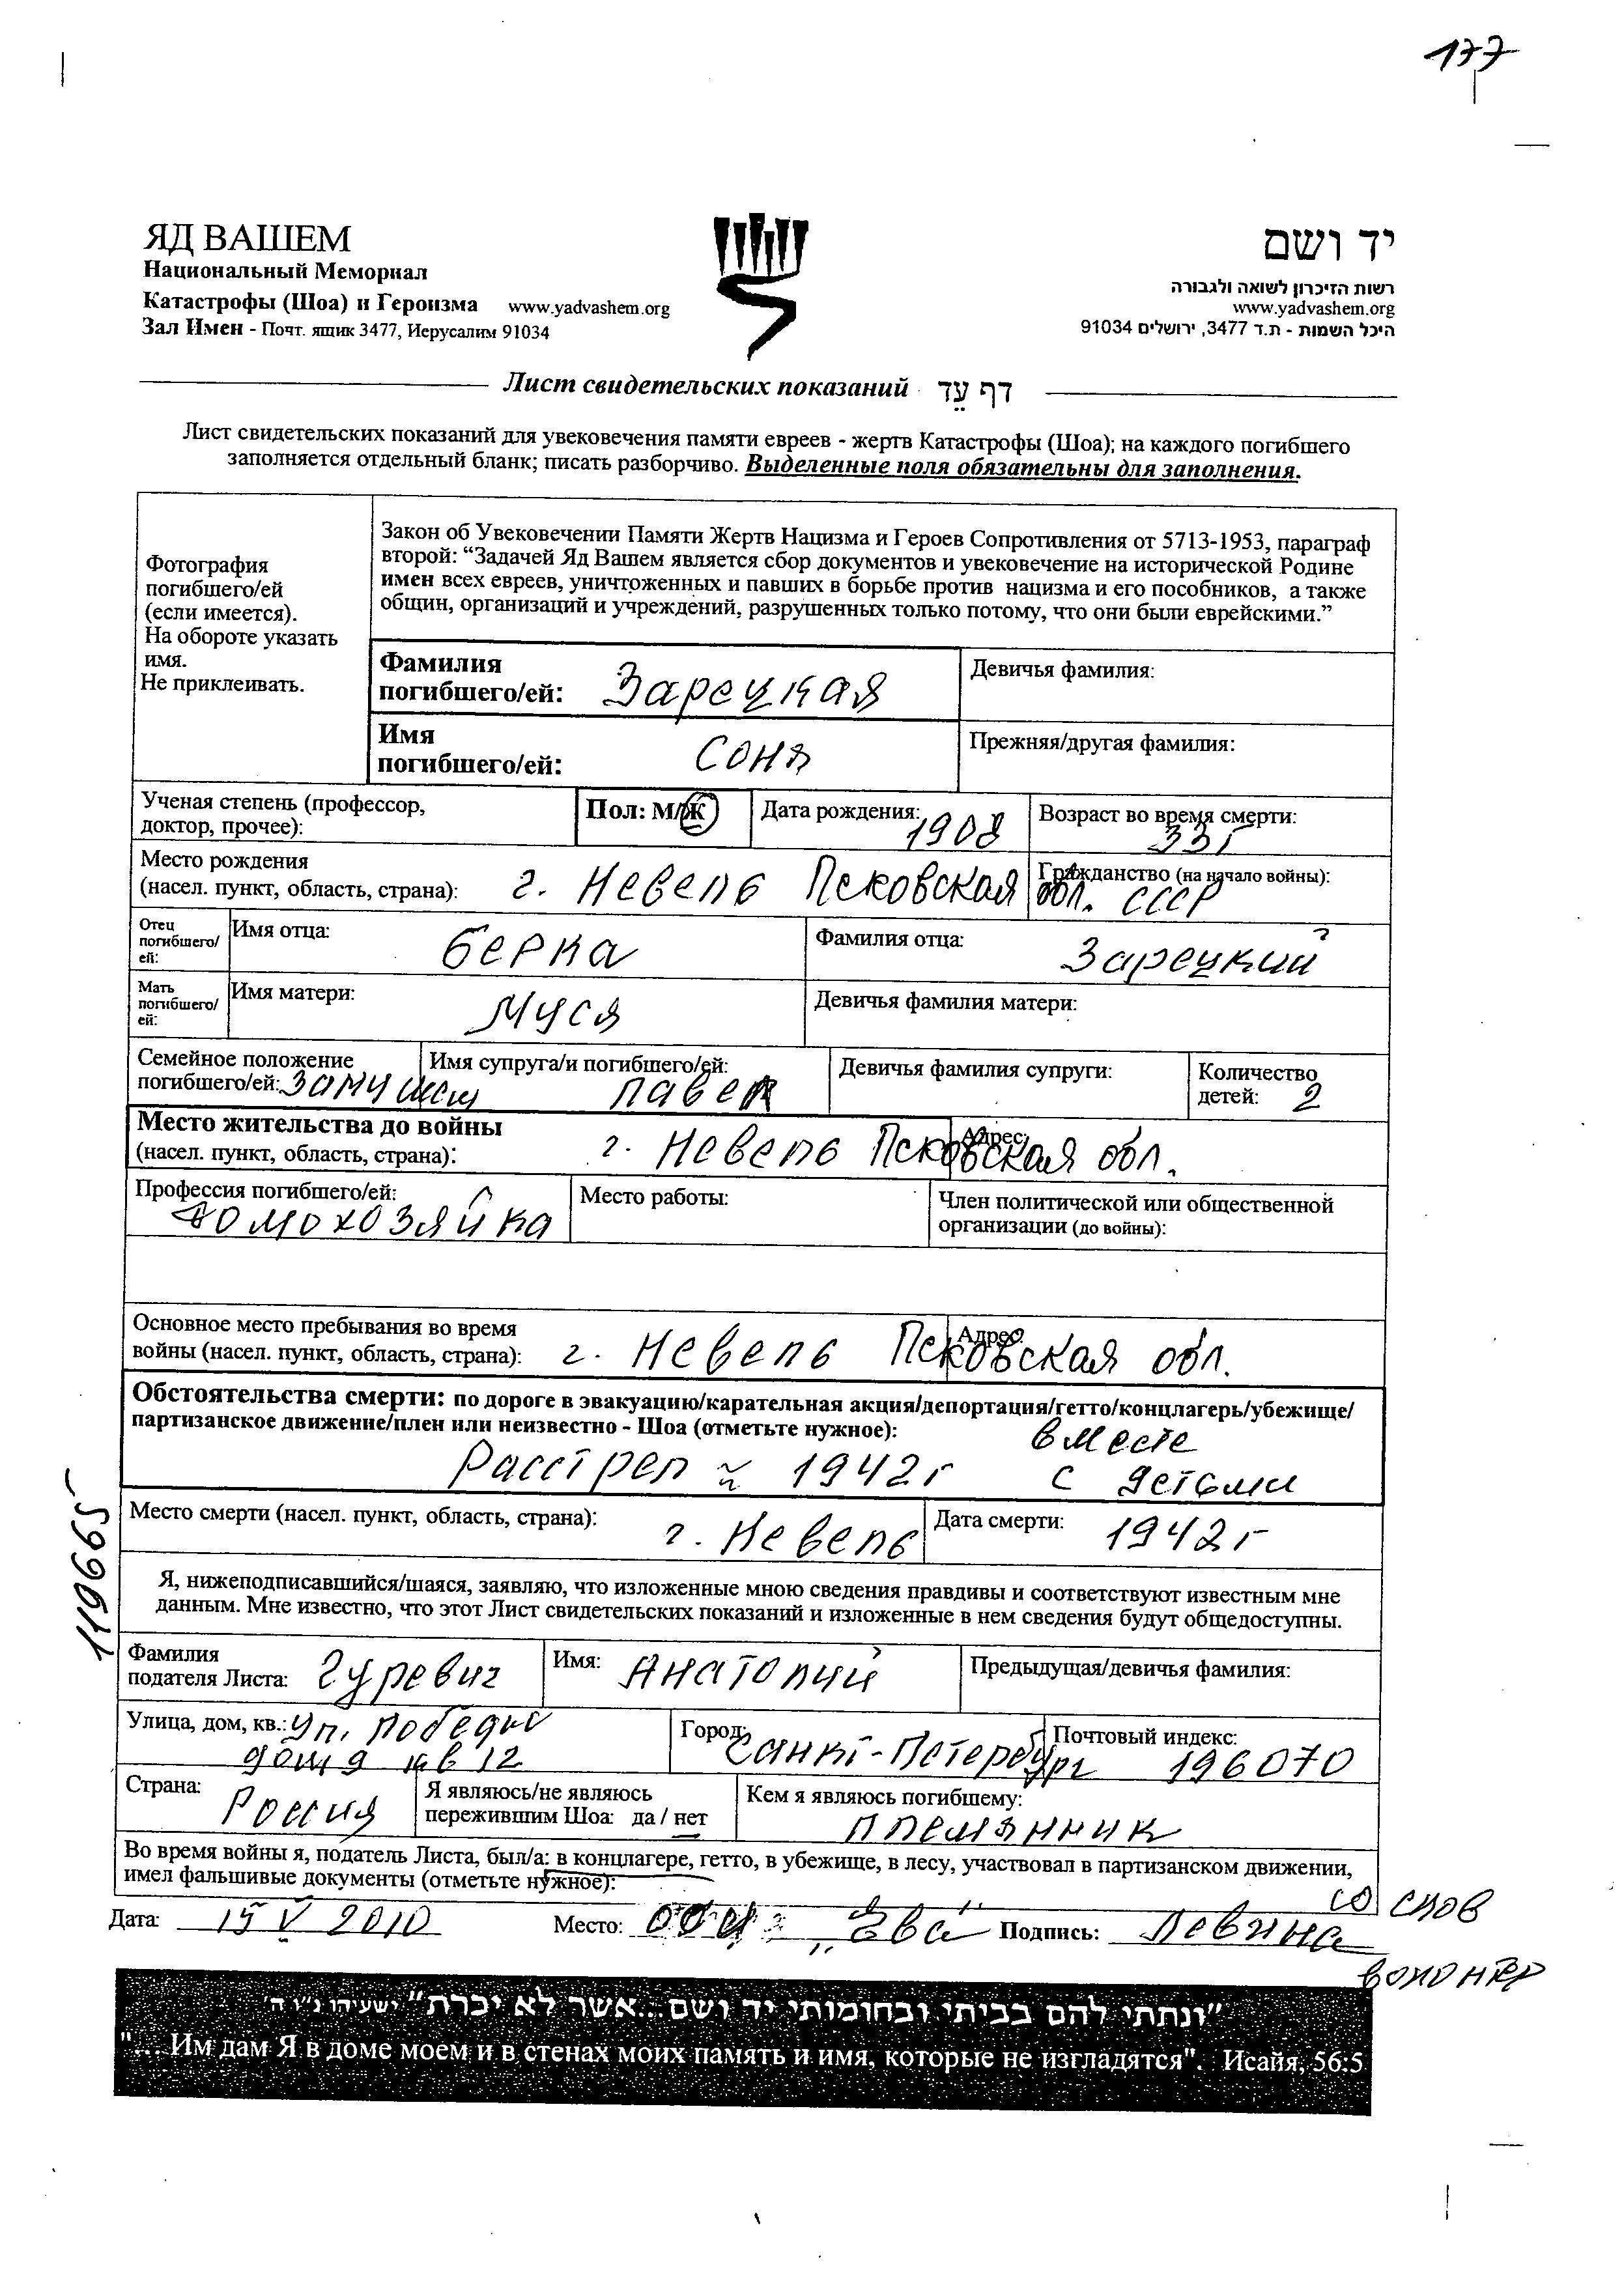 177
ЯД ВАШЕМ
Национальный Мемориал
Катастрофы (Шоа) и Героизма www.yadvashem.org
Зал Имен - Почт. ящик 3477, Иерусалим 91034
יד ושם
רשות הזיכרון לשואה ולגבורה
www.yadvashem.org
היכל השמות - ת.ד 3477, ירושלים 91034
Лист свидетельских показаний דף עֵד
Лист свидетельских показаний для увековечения памяти евреев - жертв Катастрофы (Шоа); на каждого погибшего
заполняется отдельный бланк; писать разборчиво. Выделенные поля обязательны для заполнения.
Фотография
погибшего/ей
(если имеется).
На обороте указать
имя.
Не приклеивать.
Закон об Увековечении Памяти Жертв Нацизма и Героев Сопротивления от 5713-1953, параграф
второй: “Задачей Яд Вашем является сбор документов и увековечение на исторической Родине
имен всех евреев, уничтоженных и павших в борьбе против нацизма и его пособников, а также
общин, организаций и учреждений, разрушенных только потому, что они были еврейскими.”
Фамилия
погибшего/ей: Зарецкая
Девичья фамилия:
Имя
погибшего/ей: Соня
Прежняя/другая фамилия:
Ученая степень (профессор,
доктор, прочее):
Пол: М/Ж
Дата рождения: 1908
Возраст во время смерти:
33г
Место рождения
(насел. пункт, область, страна): г. Невель Псковская обл.
Гражданство (на начало войны):
СССР
Отец
погибшего/
ей:
Имя отца: Берка
Фамилия отца: Зарецкий
Мать
погибшего/
ей:
Имя матери: Муся
Девичья фамилия матери:
Семейное положение
погибшего/ей: замужем
Имя супруга/и погибшего/ей:
Павел
Девичья фамилия супруги:
Количество
детей: 2
Место жительства до войны
(насел. пункт, область, страна): г. Невель Псковская обл.
Адрес:
Профессия погибшего/ей:
домохозяйка
Место работы:
Член политической или общественной
организации (до войны):
Основное место пребывания во время
войны (насел. пункт, область, страна): г. Невель Псковская обл.
Адрес:
Обстоятельства смерти: по дороге в эвакуацию/карательная акция/депортация/гетто/концлагерь/убежище/
партизанское движение/плен или неизвестно - Шоа (отметьте нужное): вместе
Расстрел ≈ 1942г с детьми
Место смерти (насел. пункт, область, страна): г. Невель
Дата смерти: 1942г
119665
Я, нижеподписавшийся/шаяся, заявляю, что изложенные мною сведения правдивы и соответствуют известным мне
данным. Мне известно, что этот Лист свидетельских показаний и изложенные в нем сведения будут общедоступны.
Фамилия
подателя Листа: Гуревич
Имя: Анатолий
Предыдущая/девичья фамилия:
Улица, дом, кв.: ул. Победы
дом 9 кв 12
Город: Санкт-Петербург
Почтовый индекс:
196070
Страна: Россия
Я являюсь/не являюсь
пережившим Шоа: да / нет
Кем я являюсь погибшему:
племянник
Во время войны я, податель Листа, был/а: в концлагере, гетто, в убежище, в лесу, участвовал в партизанском движении,
имел фальшивые документы (отметьте нужное):
со слов
Дата: 15 V 2010 Место: "Эва" Подпись: Левина
волонтер
"ונתתי להם בביתי ובחומותי יד ושם...אשר לא יכרת" ישעיהו נ"ו ה'
"... Им дам Я в доме моем и в стенах моих память и имя, которые не изгладятся". Исайя, 56:5